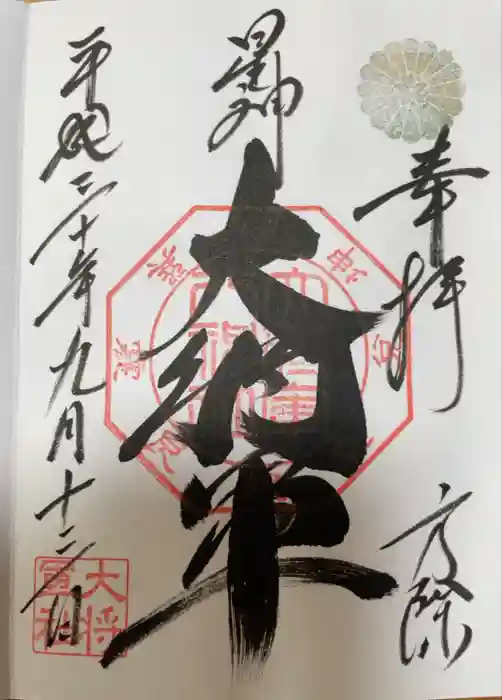 奉拝
方除
星神
大将軍
平成三十年九月十二日
大将
軍社